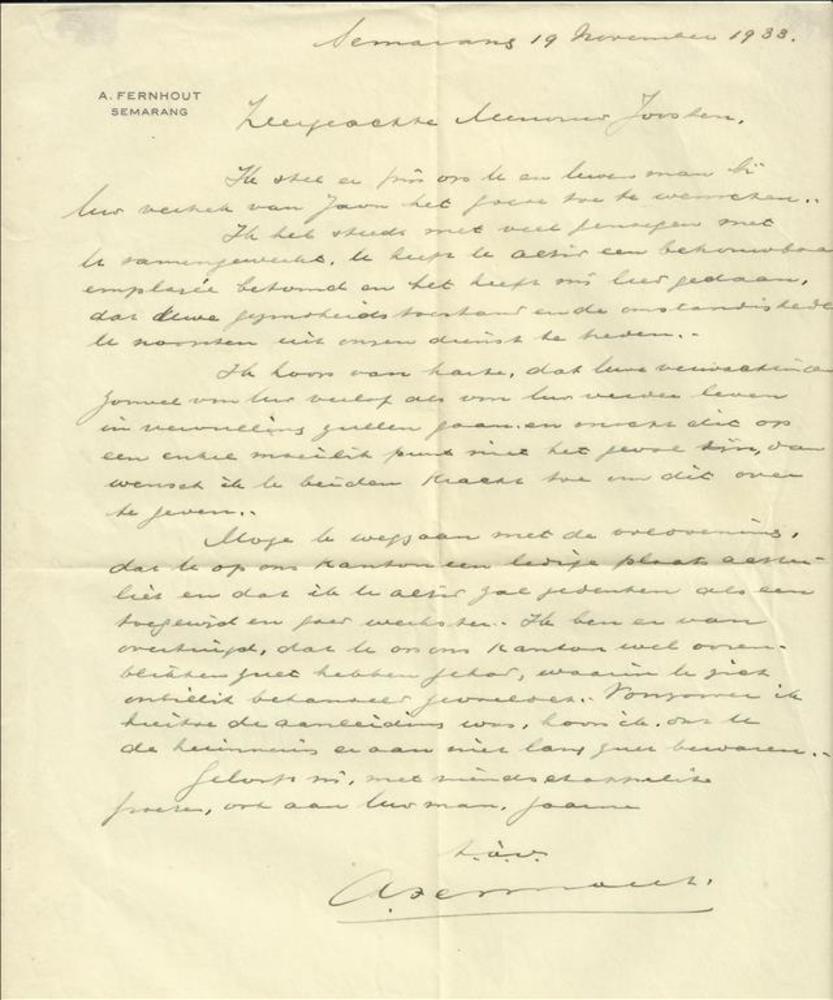 Semarang 19 November 1933.
A. FERNHOUT
SEMARANG
Zeergeachte Mevrouw Joosten,
Ik stel er prijs op U en Uwen man bij
Uw vertrek van Java het goede toe te wenschen..
Ik heb steeds met veel genoegen met
U samengewerkt. U heeft U altijd een betrouwbaa
employée betoond en het heeft mij leed gedaan,
dat Uwe gezondheidstoestand en de omstandighede
U noopten uit onzen dienst te treden..
Ik hoop van harte, dat Uwe verwachtingen
zoowel van Uw verlof als van Uw verder leven
in vervulling zullen gaan en mocht dit op
een enkel moeilijk punt niet het geval zijn, dan
wensch ik U beiden kracht toe om dit over
te geven..
Moge U weggaan met de overtuiging,
dat U op ons kantoor een ledige plaats achter-
liet en dat ik U altijd zal gedenken als een
toegewijd en goed werkster. Ik ben er van
overtuigd, dat U op ons kantoor wel oogen-
blikken zult hebben gehad, waarin U zich
onbillijk behandeld gevoeldet.. Voorzoover ik
hiertoe de aanleiding was, hoop ik, dat U
de herinnering eraan niet lang zult bewaren..
Geloof mij, met vriendschappelijke
groeten, ook aan Uw man, gaarne
t.à.v.
A. Fernhout.